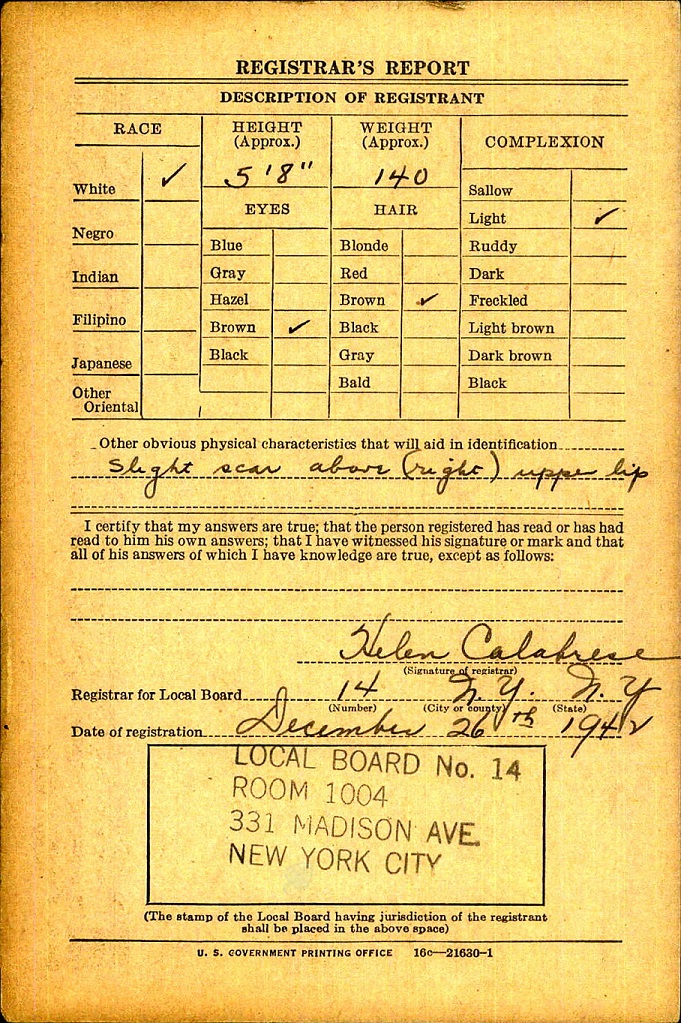 REGISTRAR'S REPORT
DESCRIPTION OF REGISTRANT
RACE
HEIGHT
(Approx.)
WEIGHT
(Approx.)
COMPLEXION
White ✓
5'8"
140
Sallow
EYES
HAIR
Light ✓
Negro
Blue
Blonde
Ruddy
Indian
Gray
Red
Dark
Hazel
Brown ✓
Freckled
Filipino
Brown ✓
Black
Light brown
Japanese
Black
Gray
Dark brown
Other
Oriental
Bald
Black
Other obvious physical characteristics that will aid in identification
Slight scar above (right) upper lip
I certify that my answers are true; that the person registered has read or has had
read to him his own answers; that I have witnessed his signature or mark and that
all of his answers of which I have knowledge are true, except as follows:
Helen Calabrese
(Signature of registrar)
Registrar for Local Board 14 N.Y. N.Y
(Number) (City or county) (State)
Date of registration December 26th 1942
LOCAL BOARD No. 14
ROOM 1004
331 MADISON AVE.
NEW YORK CITY
(The stamp of the Local Board having jurisdiction of the registrant
shall be placed in the above space)
U. S. GOVERNMENT PRINTING OFFICE 16c—21630-1